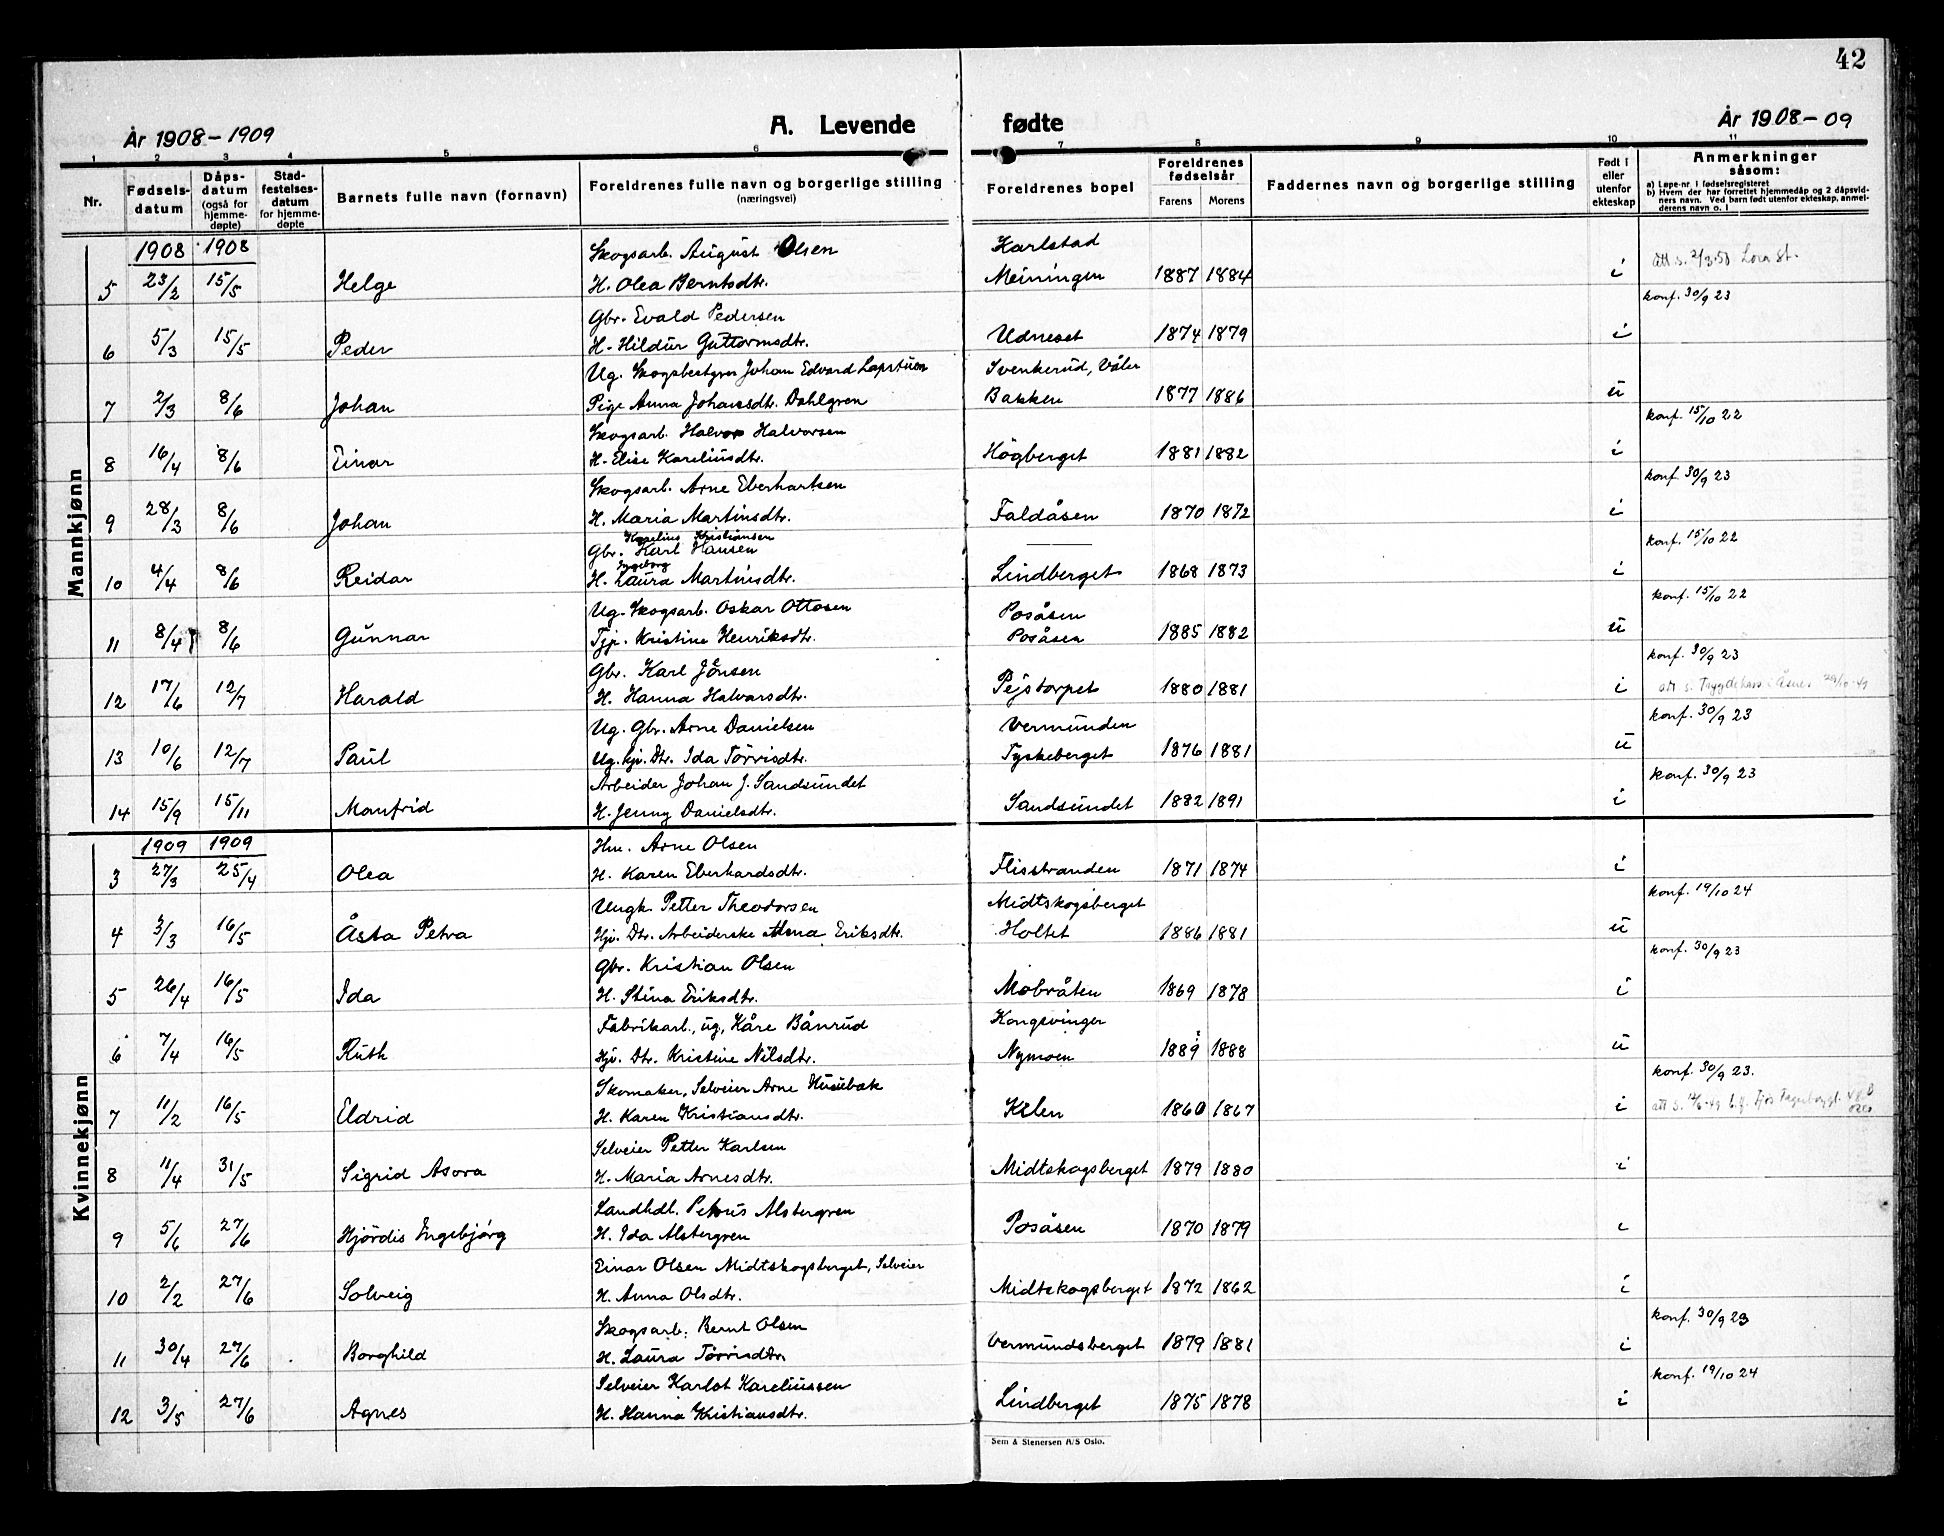 42
År 1908-1909 A. Levende fødte År 1908-09
1 2 3 4 5 6 7 8 9 10 11
Nr. Fødsels-datum Dåps-datum (også for hjemme-døpte) Stad-festelses-datum for hjemme-døpte Barnets fulle navn (fornavn) Foreldrenes fulle navn og borgerlige stilling (næringsvei) Foreldrenes bopel Foreldrenes fødselsår Farens Morens Faddernes navn og borgerlige stilling Født i eller utenfor ekteskap Anmerkninger såsom:
a) Løpe-nr. i fødselsregisteret
b) Hvem der har forrettet hjemmedåp og 2 dåpsvidners navn. Ved barn født utenfor ekteskap, anmelderens navn o. l
Mannkjønn
1908 1908 Skogsarb. August Olsen Karlstad
5 23/2 15/5 Helge H. Olea Berntsdtr. Meiningen 1887 1884 i att s. 2/3-50
konf. 30/9 23
Gbr. Evald Pedersen
6 5/3 15/5 Peder H. Hildur Guttormsdtr. Udneset 1874 1879 i
Ug. Skogsbestyrer Johan Edvard Lapstuen Svenkerud, Våler
7 2/3 8/6 Johan Pige Anna Johansdtr. Dahlgren Bakken 1877 1886 u
konf. 15/10 22
Skogsarb. Halvor Halvorsen
8 16/4 8/6 Einar H. Elise Kareliusdtr. Högberget 1881 1882 i
konf. 30/9 23
Skogsarb. Arne Eberhartsen
9 28/3 8/6 Johan H. Maria Martinsdtr. Faldåsen 1870 1872 i
Karelius Kristiansen
konf. 15/10 22
Gbr. Karl Hansen
Ingeborg
10 4/4 8/6 Reidar H. Laura Martinsdtr. Lindberget 1868 1873 i
konf. 15/10 22
Ug. Skogsarb. Oskar Ottosen Posåsen
11 8/4 8/6 Gunnar Tjp. Kristine Henriksdtr. Posåsen 1885 1882 u
konf. 30/9 23
Gbr. Karl Jönsen
12 17/6 12/7 Harald H. Hanna Halvarsdtr. Pejstorpet 1880 1881 i att s. Trygdekass i Åsnes 29/10-49
konf. 30/9 23
Ug. Gbr. Arne Danielsen Vermunden
13 10/6 12/7 Paul Ug. hjv. Dtr. Ida Törrisdtr. Tyskeberget 1876 1881 u
konf. 30/9 23
Arbeider Johan J. Sandsundet
14 15/9 15/11 Manfrid H. Jenny Danielsdtr. Sandsundet 1882 1891 i
Kvinnekjønn
1909 1909 Hm. Arne Olsen
3 27/3 25/4 Olea H. Karen Eberhardsdtr. Flisstranden 1871 1874 i
konf. 19/10 24
Ungk. Petter Theodorsen Midtskogsberget
4 3/3 16/5 Åsta Petra Hjv. Dtr. Arbeiderske Alma Eriksdtr. Holtet 1886 1881 u
konf. 30/9 23
Gbr. Kristian Olsen
5 26/4 16/5 Ida H. Stina Eriksdtr. Mobråten 1869 1878 i
Fabrikarb., ug, Kåre Bånrud Kongsvinger
6 7/4 16/5 Ruth Hjv. Dtr. Kristine Nilsdtr. Nymoen 1889 1888 u
konf. 30/9 23.
Skomaker, Selveier Arne Husebak
7 11/2 16/5 Eldrid H. Karen Kristiansdtr. Kilen 1860 1867 i
Selveier Petter Karlsen
8 11/4 31/5 Sigrid Asora H. Maria Arnesdtr. Midtskogsberget 1879 1880 i
Landhdl. Petrus Alstergren
9 5/6 27/6 Hjördis Ingebjörg H. Ida Alstergren Posåsen 1870 1879 i
Einar Olsen Midtskogsberget, Selveier
10 2/2 27/6 Solveig H. Anna Olsdtr. Midtskogsberget 1872 1862 i
konf. 30/9 23
Skogsarb. Bernt Olsen
11 30/4 27/6 Borghild H. Laura Törrisdtr Vermundsberget 1879 1881 i
konf. 19/10 24
Selveier Karlot Kareliussen
12 3/5 27/6 Agnes H. Hanna Kristiansdtr. Lindberget 1875 1878 i
Sem & Stenersen A/S Oslo.